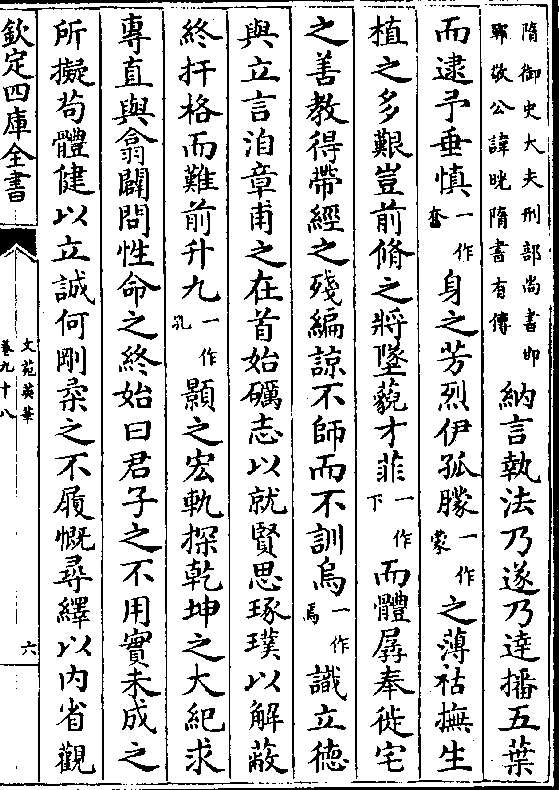 隋御史大夫刑部尚書邯
鄲敬公諱晄隋書有傳
納言執法乃遂乃達播五葉
而逮予垂慎一作奮身之芳烈伊孤朦一作蒙之薄祜撫生
植之多艱豈前脩之將墜藐才菲一作下而體孱奉徙宅
之善教得帶經之殘編諒不師而不訓烏一作焉識立德
與立言洎章甫之在首始礪志以就賢思琢璞以解蔽
終扞格而難前升九一作孔顥之宏軌探乾坤之大紀求
專直與翕闢問性命之終始曰君子之不用實未成之
所擬苟體健以立誠何剛柔之不履慨尋繹以内省觀
欽定四庫全書
文苑英華
卷九十八
六